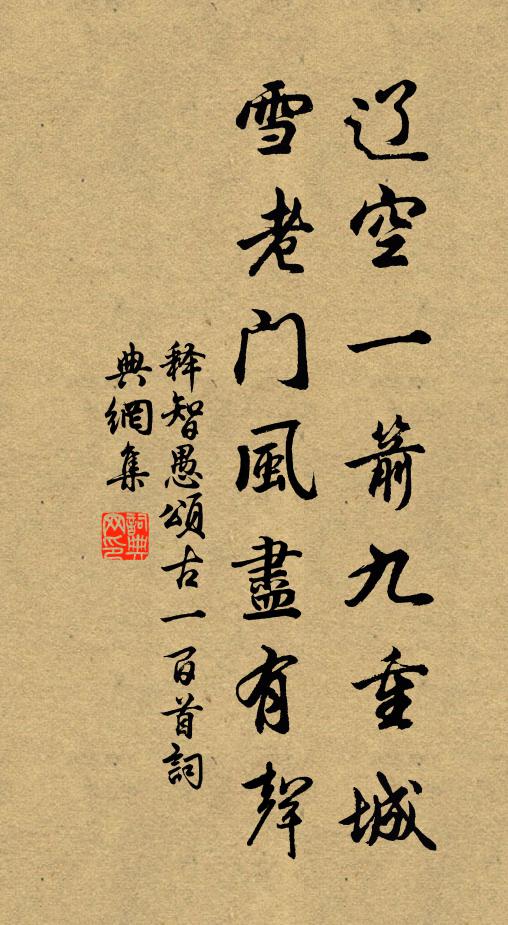 辽空一箭九重城
雪老门風盡有聲
释智愚頌古一百首詞
典網集
詞典网印